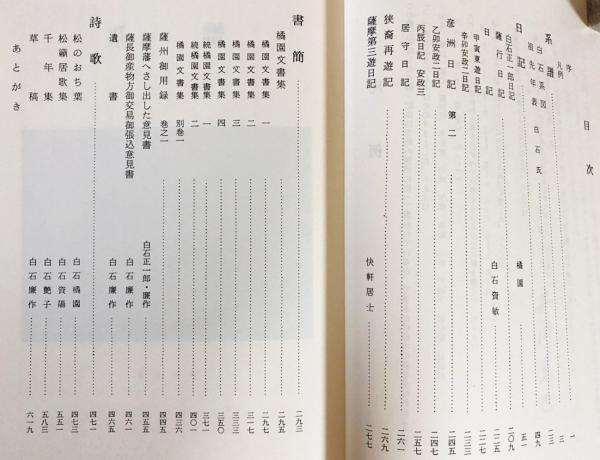 目次
序 一
凡例 三
系譜
白石系図 白石氏 二三
祖先年表 四九
日記 五一
白石正一郎日記
薩行日記 橘園 二〇九
日記 白石資敏 二一一
甲寅東遊日記 二二七
辛卯安政二日記 二三三
彦洲日記 第二 二四五
乙卯安政二日記 二四七
丙辰日記 安政三
居守日記 二六一
狭裔再遊日記 二六九
薩摩第三遊日記 快軒居士 二七七
書簡 二九三
橘園文書集 二九五
橘園文書集 一 二九七
橘園文書集 二 三一七
橘園文書集 三 三三三
橘園文書集 四 三五〇
続橘園文書集 一 三七一
続橘園文書集 二 四〇一
橘園文書集 別巻一 四三六
薩州御用録 巻之一 四四五
薩摩藩へさし出した意見書 白石正一郎・廉作 四五五
薩長御産物方御交易御張込意見書 白石廉作 四六一
遺書 白石廉作 四六五
詩歌 四七一
松のおち葉 白石橘園 四七三
松籟居歌集 白石資陽 五五一
千年集 白石艶子 五八三
草稿 白石廉作
あとがき 六一九